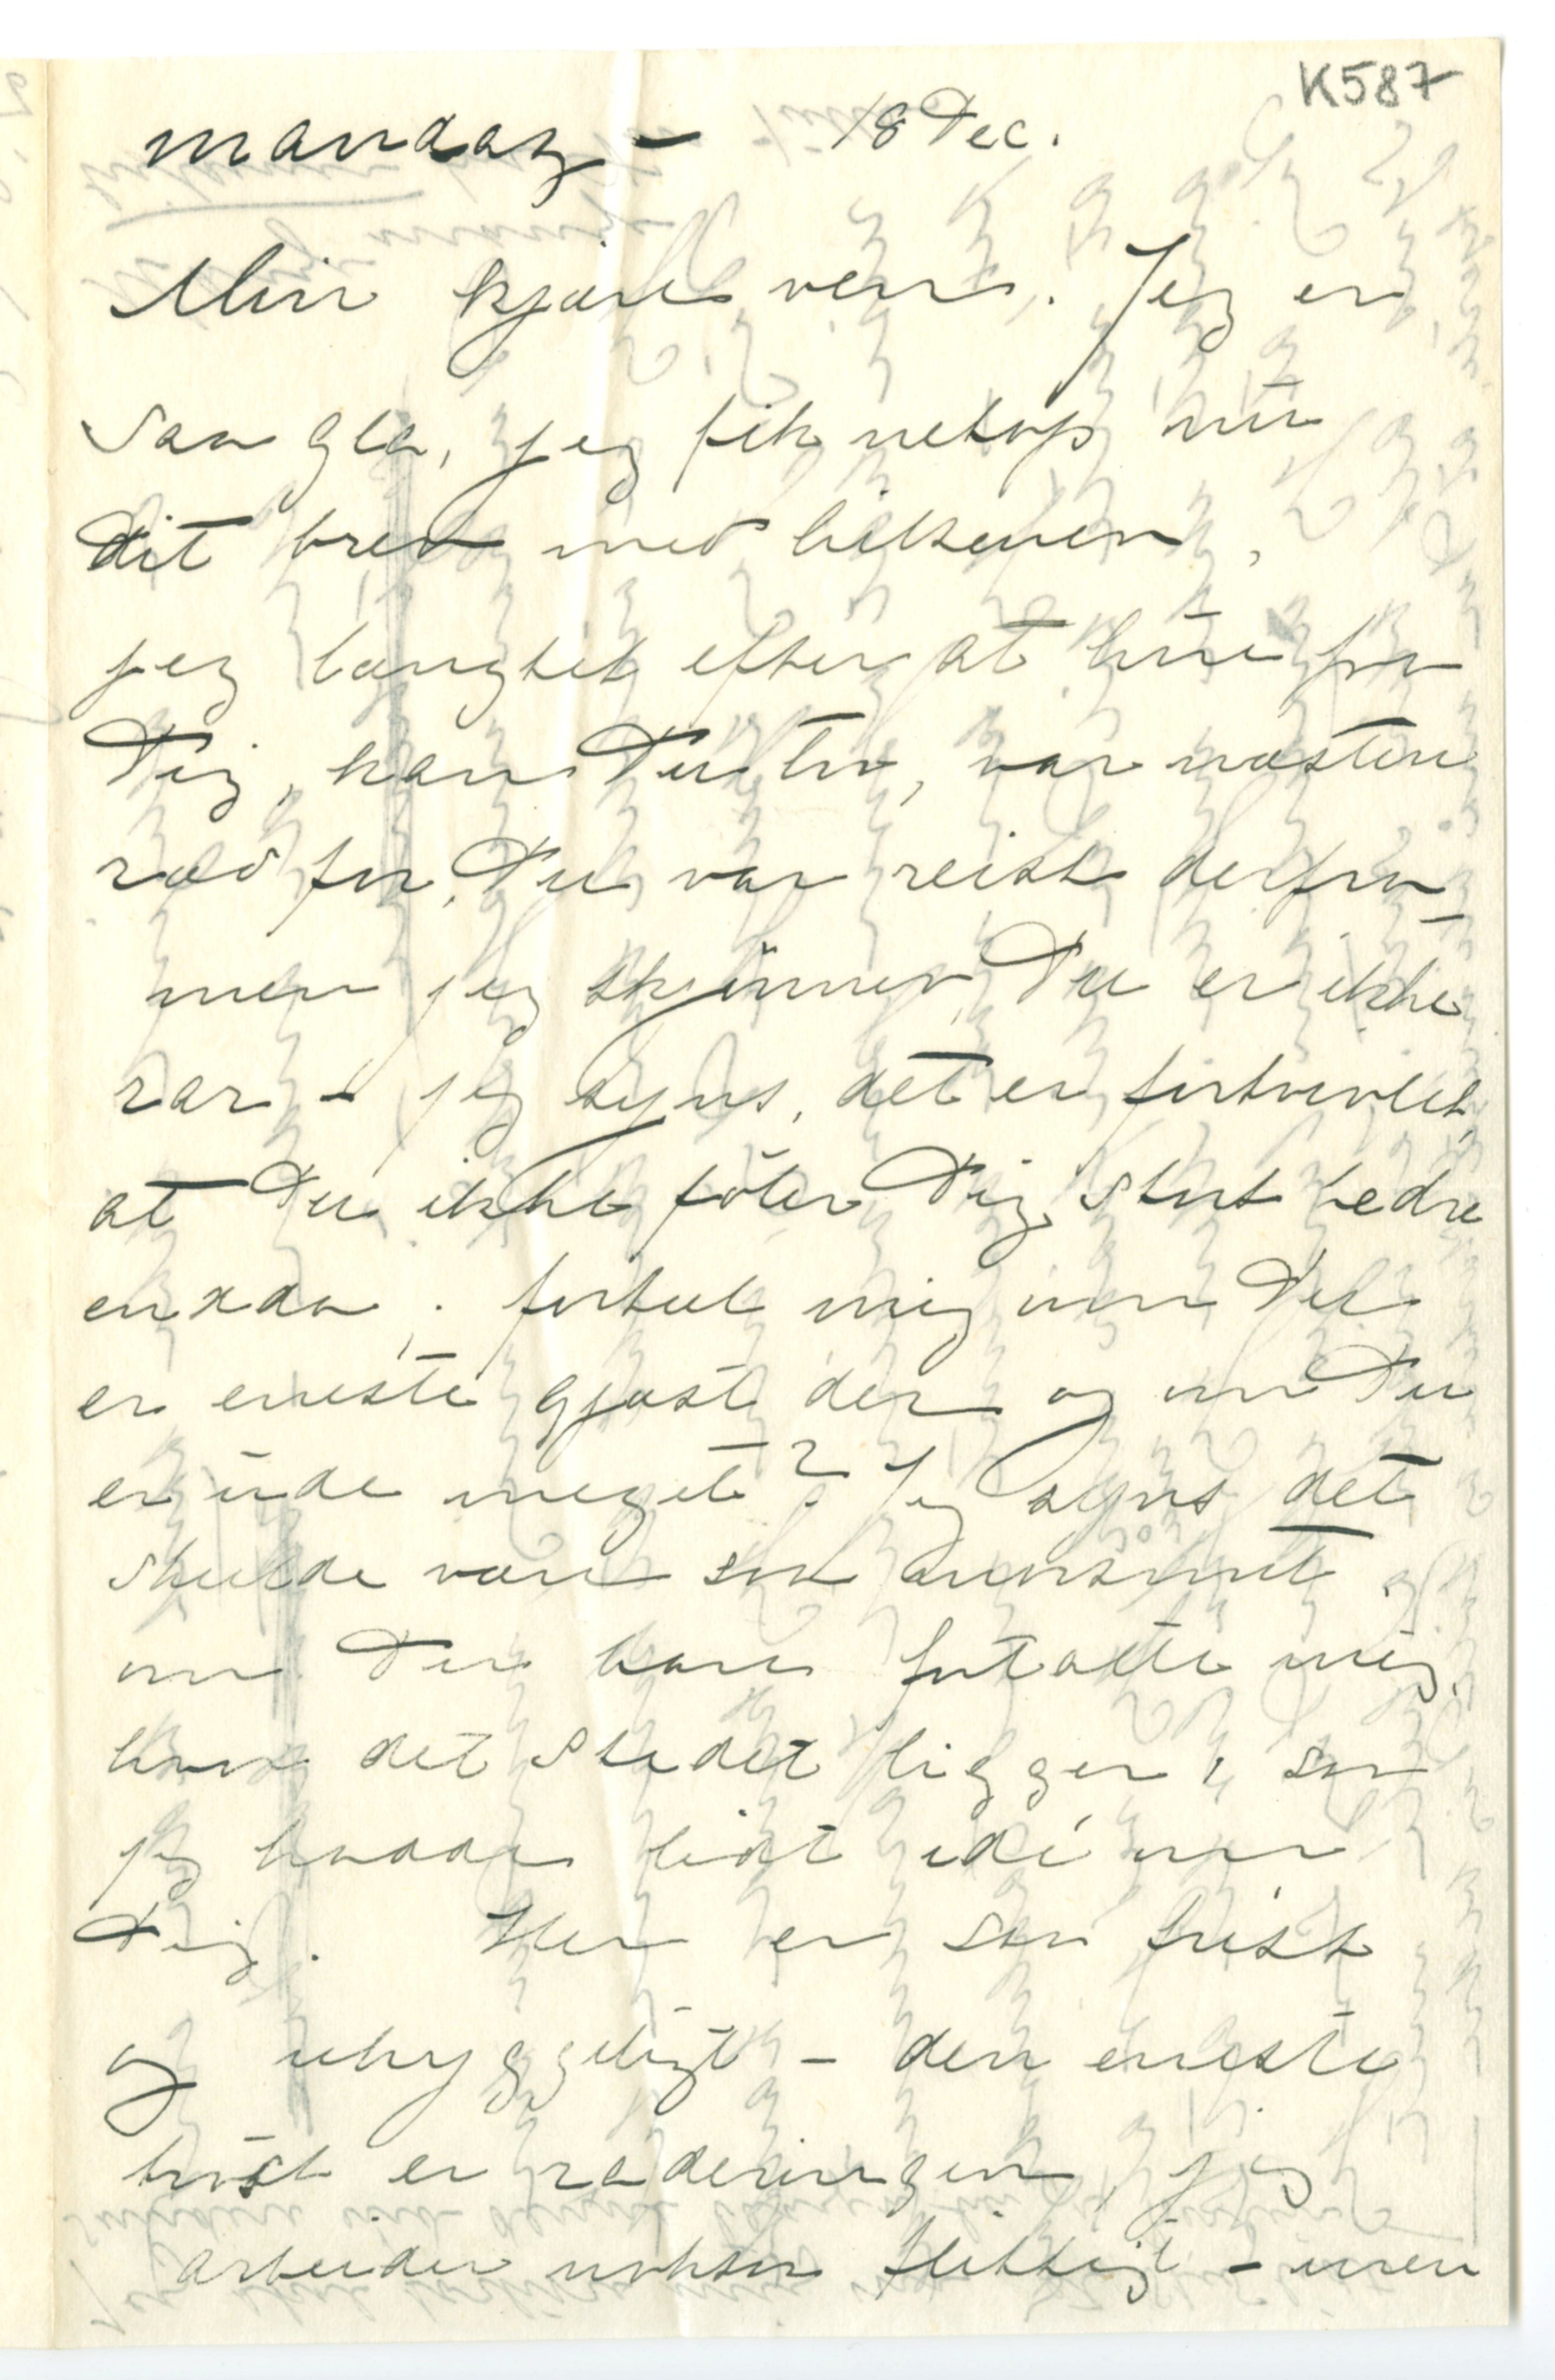 K587
mandag – 18 Dec.
Min kjære ven. Jeg er
saa gla, jeg fik netop nu
dit brev med hilsenen,
jeg længtet efter at høre fra
Dig, kan Du tro, var næsten
ræd for, Du var reist derfra –
men jeg skjønner, Du er ikke
rar – jeg syns, det er fortvivlet,
at Du ikke føler Dig stort bedre
endda. fortæl mig om Du
er eneste gjæst der og om Du
er ude meget? Jeg syns det
skulde være saa
om Du bare fortalte mig,
hvor det stedet ligger, saa
jeg hadde lidt idé om
Dig. Her er saa trist
og uhyggeligt – den eneste
trøst er raderingen, jeg
arbeider nokså flittigt – men